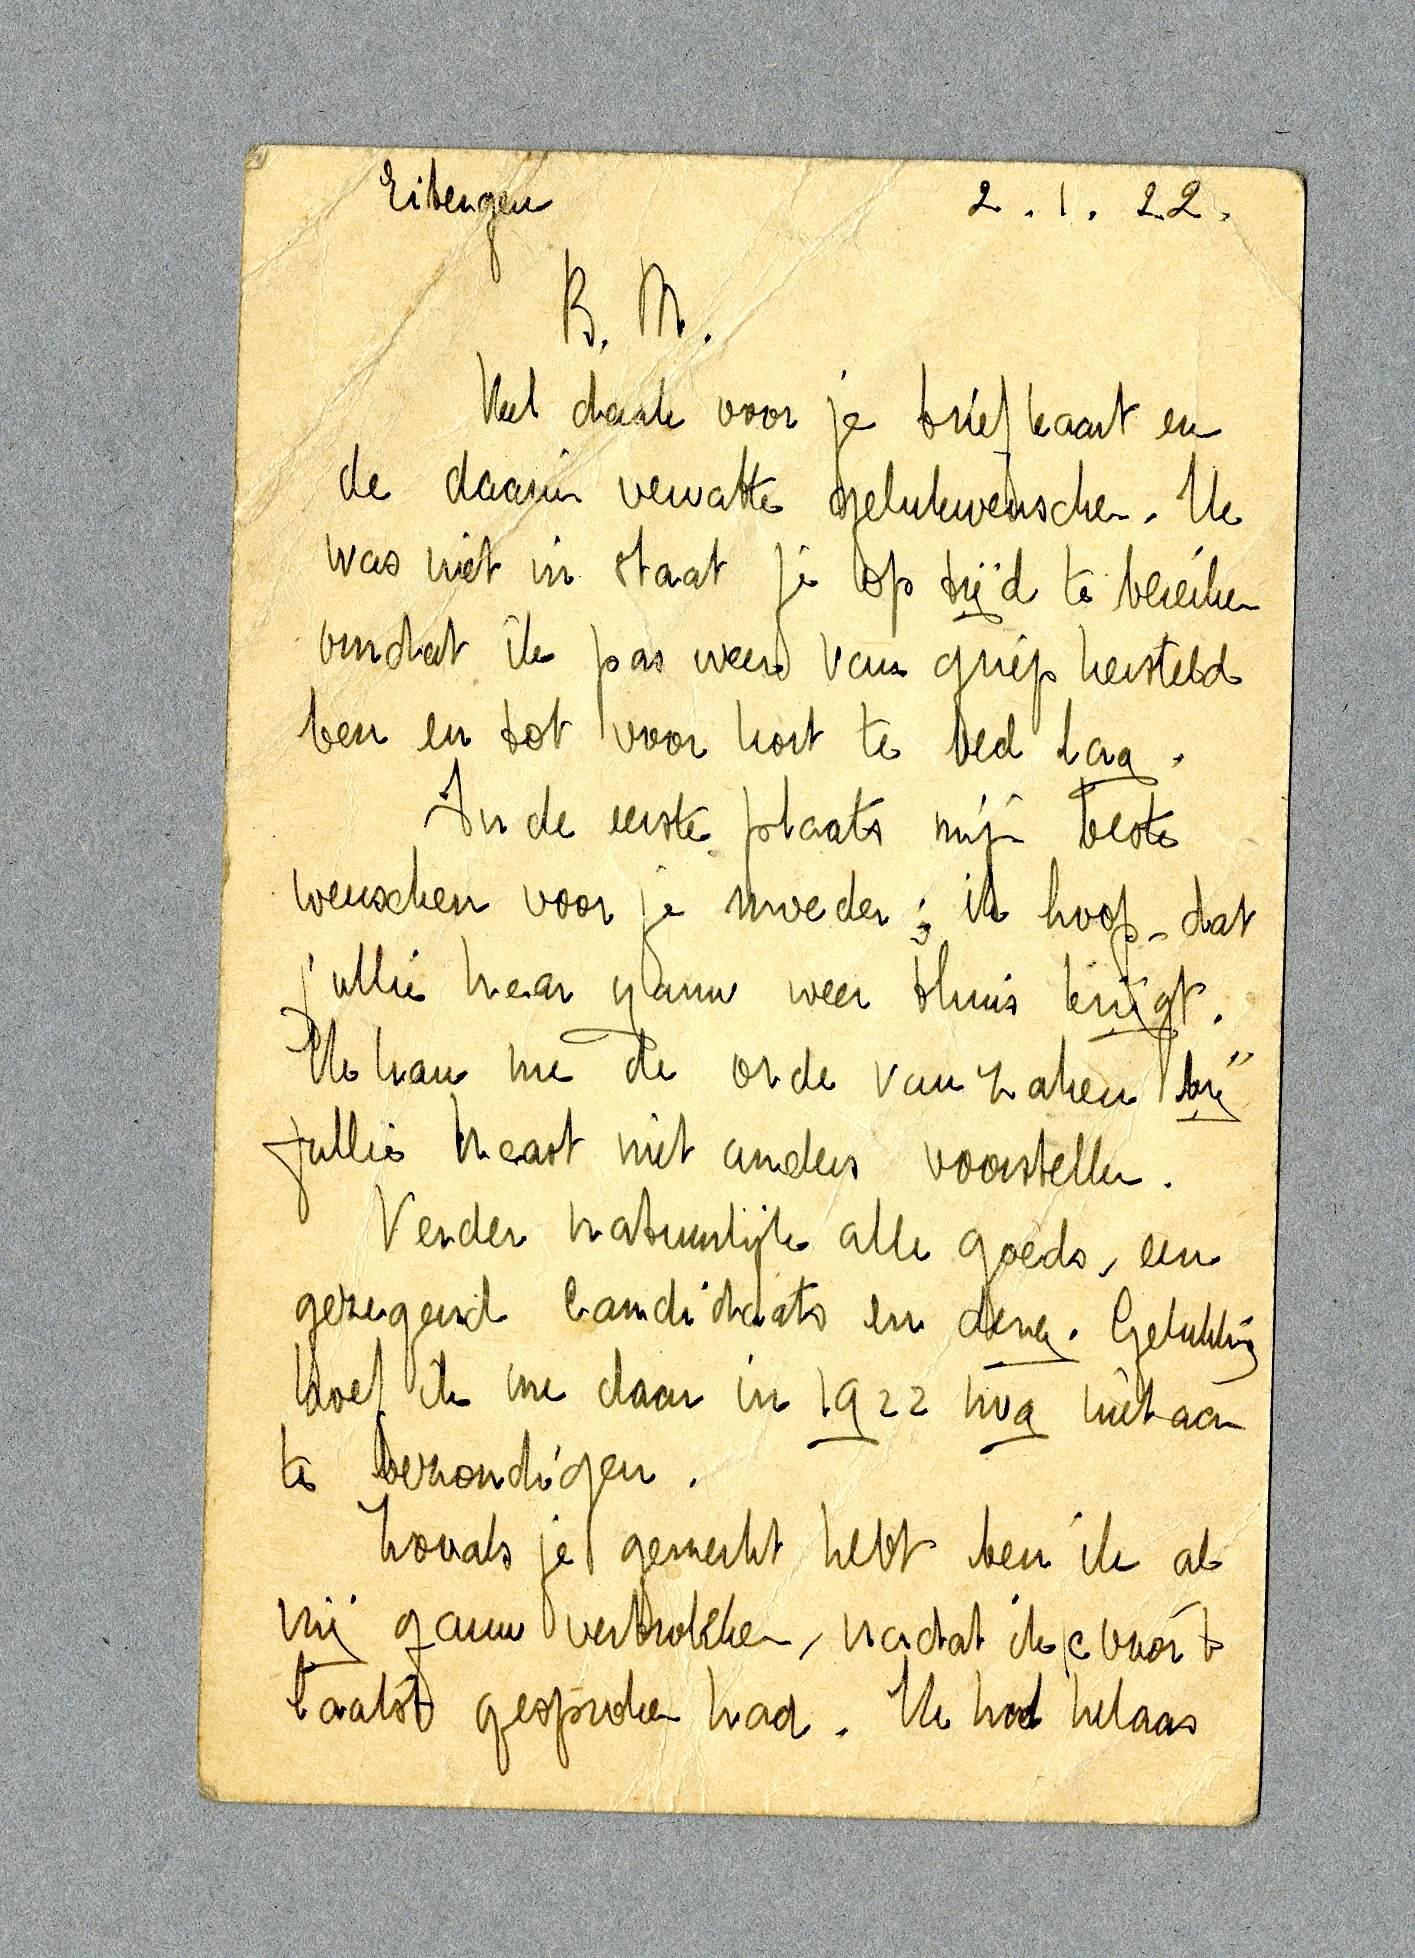 Eibergen 2.1.22.
B. M.
Veel dank voor je briefkaart en
de daarin vervatte gelukwenschen. Ik
was niet in staat je op tijd te bereiken
omdat ik pas weer van griep hersteld
ben en tot voor kort te bed lag.
In de eerste plaats mijn beste
wenschen voor je moeder; ik hoop dat
jullie haar gauw weer thuis krijgt.
Ik kan me de orde van zaken bij
jullie haast niet anders voorstellen.
Verder natuurlijk alle goeds, een
gezegend candidaats en derg. Gelukkig
hoef ik me daar in 1922 nog niet aan
te bezondigen.
Zooals je gemerkt hebt ben ik al
vrij gauw vertrokken, nadat ik je voor 't
laatst gesproken had. Ik had helaas